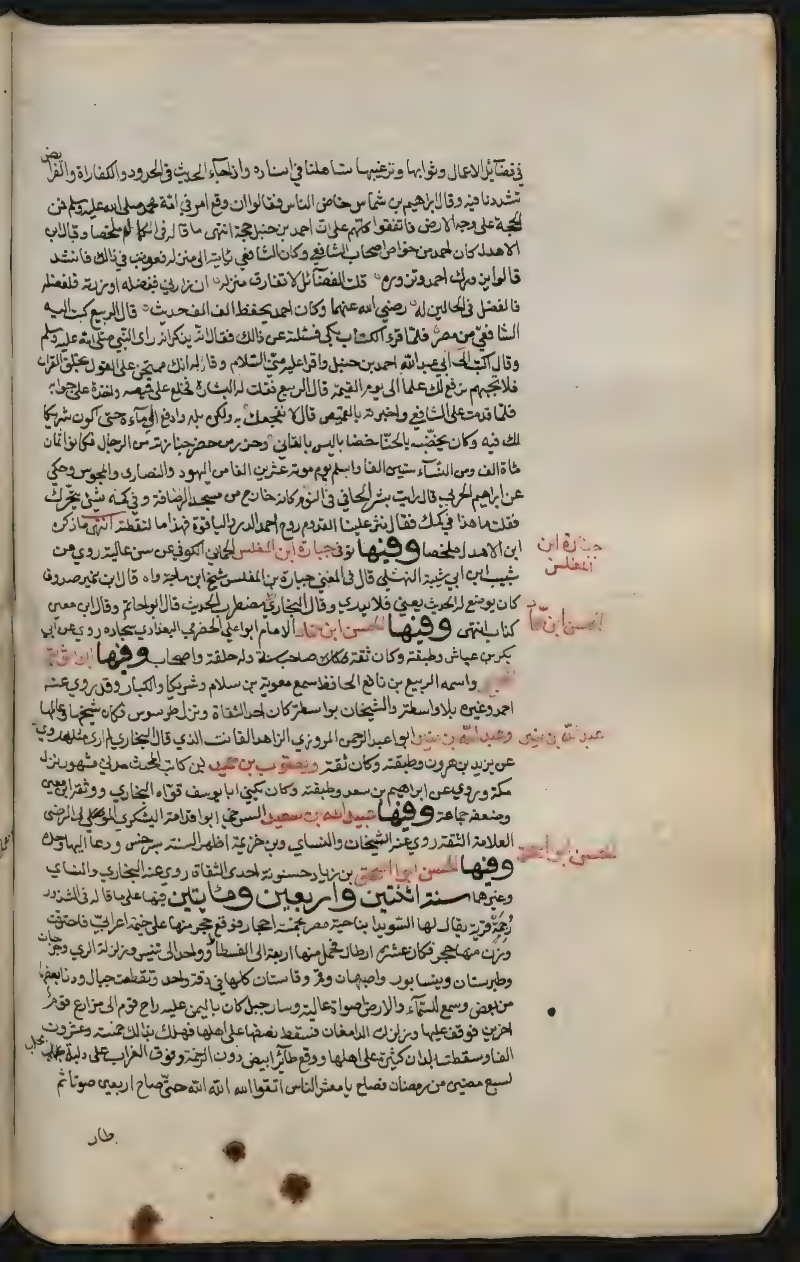 في فضائل الاعمال وثوابها وترغيبها تساهلنا في اسناده واذا جاء الحديث في الحدود والكفارات والفرايض
تشددنا فيه وقال ابراهيم بن شماس خاض الناس فقالوا ان وقع امر في امة محمد صلى الله عليه وسلم فمن
الحجة على وجه الارض فاتفقوا كلهم على ان احمد بن حنبل حجة انتهى ما قاله في ملخصا وقال ابن
الاهدل كان احمد من خواص اصحاب الشافعي وكان الشافعي ياتيه الى منزله فعوتب في ذلك فانشد
قالوا يزورك احمد وتزوره قلت الفضائل لا تفارق منزله ان زارني فبفضله او زرته فلفضله
فالفضل في الحالين له رضي الله عنهما وكان احمد يحفظ الف الف حديث قال الربيع كتب اليه
الشافعي من مصر فلما قرء الكتاب بكى فسئلته عن ذالك فقال انه يذكر انه راى النبي صلى الله عليه وسلم
وقال اكتب الى ابي عبدالله احمد بن حنبل واقرا عليه مني السلام وقل له انك ستمتحن على القول بخلق القران
فلا تجبهم نرفع لك علما الى يوم القيمة قال الربيع فقلت له البشارة فخلع علي قميصه واخذت على جوابه
فلما قدمت على الشافعي واخبرته بالقميص قال لا نفجعك به ولكن بله وادفع الي ماءه حتى اكون شريكا
لك فيه وكان يخضب بالحنا خضابا ليس بالقاني وحزر من حضر جنازته من الرجال فكانوا ثمان
ماة الف ومن النساء ستين الفا واسلم يوم موته عشرين الفا من اليهود والنصارى والمجوس وحكى
عن ابراهيم الحربي قال رايت بشر الحافي في النوم كانه خارج من مسجد الرصافة وفي كمه شئ يتحرك
فقلت ما هذا في كمك فقال نثر علينا لقدوم روح احمد الدر والياقوت فهذا ما التقطته انتهى ما ذكره
ابن الاهدل ملخصا وفيها توفي جبارة ابن المغلس الحماني الكوفي عن سن عالية روى عن
شبيب ابن ابي شيبة النهشلي قال في المغني جبارة بن المغلس شيخ ابن ماجة واه قال ابن نمير صدوق
كان يوضع له الحديث يعني فلا يدري وقال البخاري مضطرب الحديث قال ابو حاتم وقال ابن معين
كذاب انتهى وفيها الحسن ابن حماد الامام ابو علي الحضرمي البغدادي سجاده روى عن ابي
بكر بن عياش وطبقته وكان ثقة صاحب سنة وله حلقة واصحاب وفيها ابو توبة
الحلبي واسمه الربيع بن نافع الحافظ سمع معوية بن سلام وشريكا والكبار وقل روى عنه
احمد وغيره بلا واسطة والشيخان بواسطة كان احد الثقاة ونزل طرسوس فكان شيخها وعالمها
وعبدالله بن منير ابو عبد الرحمن المروزي الزاهد القانت الذي قال البخاري لم ار مثله روى
عن يزيد بن هرون وطبقته وكان ثقة ويعقوب بن حميد بن كاسب المحدث مدني مشهور نزل
مكة وروى عن ابراهيم بن سعد وطبقته وكان يكنى ابا يوسف قواه البخاري ووثقه ابن معين
وضعفه جماعة وفيها عبيد الله بن سعيد السرخسي ابو قدامة اليشكري
العلامة الثقة روى عنه الشيخان والنساي وابن خزيمة اظهر السنة بسرخس ودعا اليها
وفيها الحسن ابو بن زياد حسنويه احدى الثقاة روى عنه البخاري والنساي
وغيرهما سنة اثنتين واربعين ومايتين فيها على ما قاله في الشذور
رجمت قرية يقال لها السويدا بناحية مصر بخمسة احجار فوقع حجر منها على خيمة اعرابي فاحترقت
ووزن منها حجر فكان عشرة ارطال فحمل منها اربعة الى الفسطاط وواحد الى تنيس وزلزلة الري وجرجان
وطبرستان ونيسابور واصبهان وقم وقاسان كلها في دقة واحدة وتقطعت جبال ودنا بعضها
من بعض وسمع للسماء والارض اصوات عالية وسار جبل كان باليمن عليه زرع قوم الى مزارع قوم
اخرين فوقف عليها وزلزلت الدامغان فسقط نصفها على اهلها فهلك بذالك خمسة وعشرون
الفا وسقطت بلدان كثيرة على اهلها ووقع طائر ابيض دون الرخمة وفوق الغراب على دلبة بحلب
لسبع مضين من رمضان فصاح يا معشر الناس اتقوا الله الله الله حتى صاح اربعين صوتا ثم
طار
جبارة ابن
المغلس
الحسن ابن حماد
عبد الله بن منير
الحسن ابو اسحق